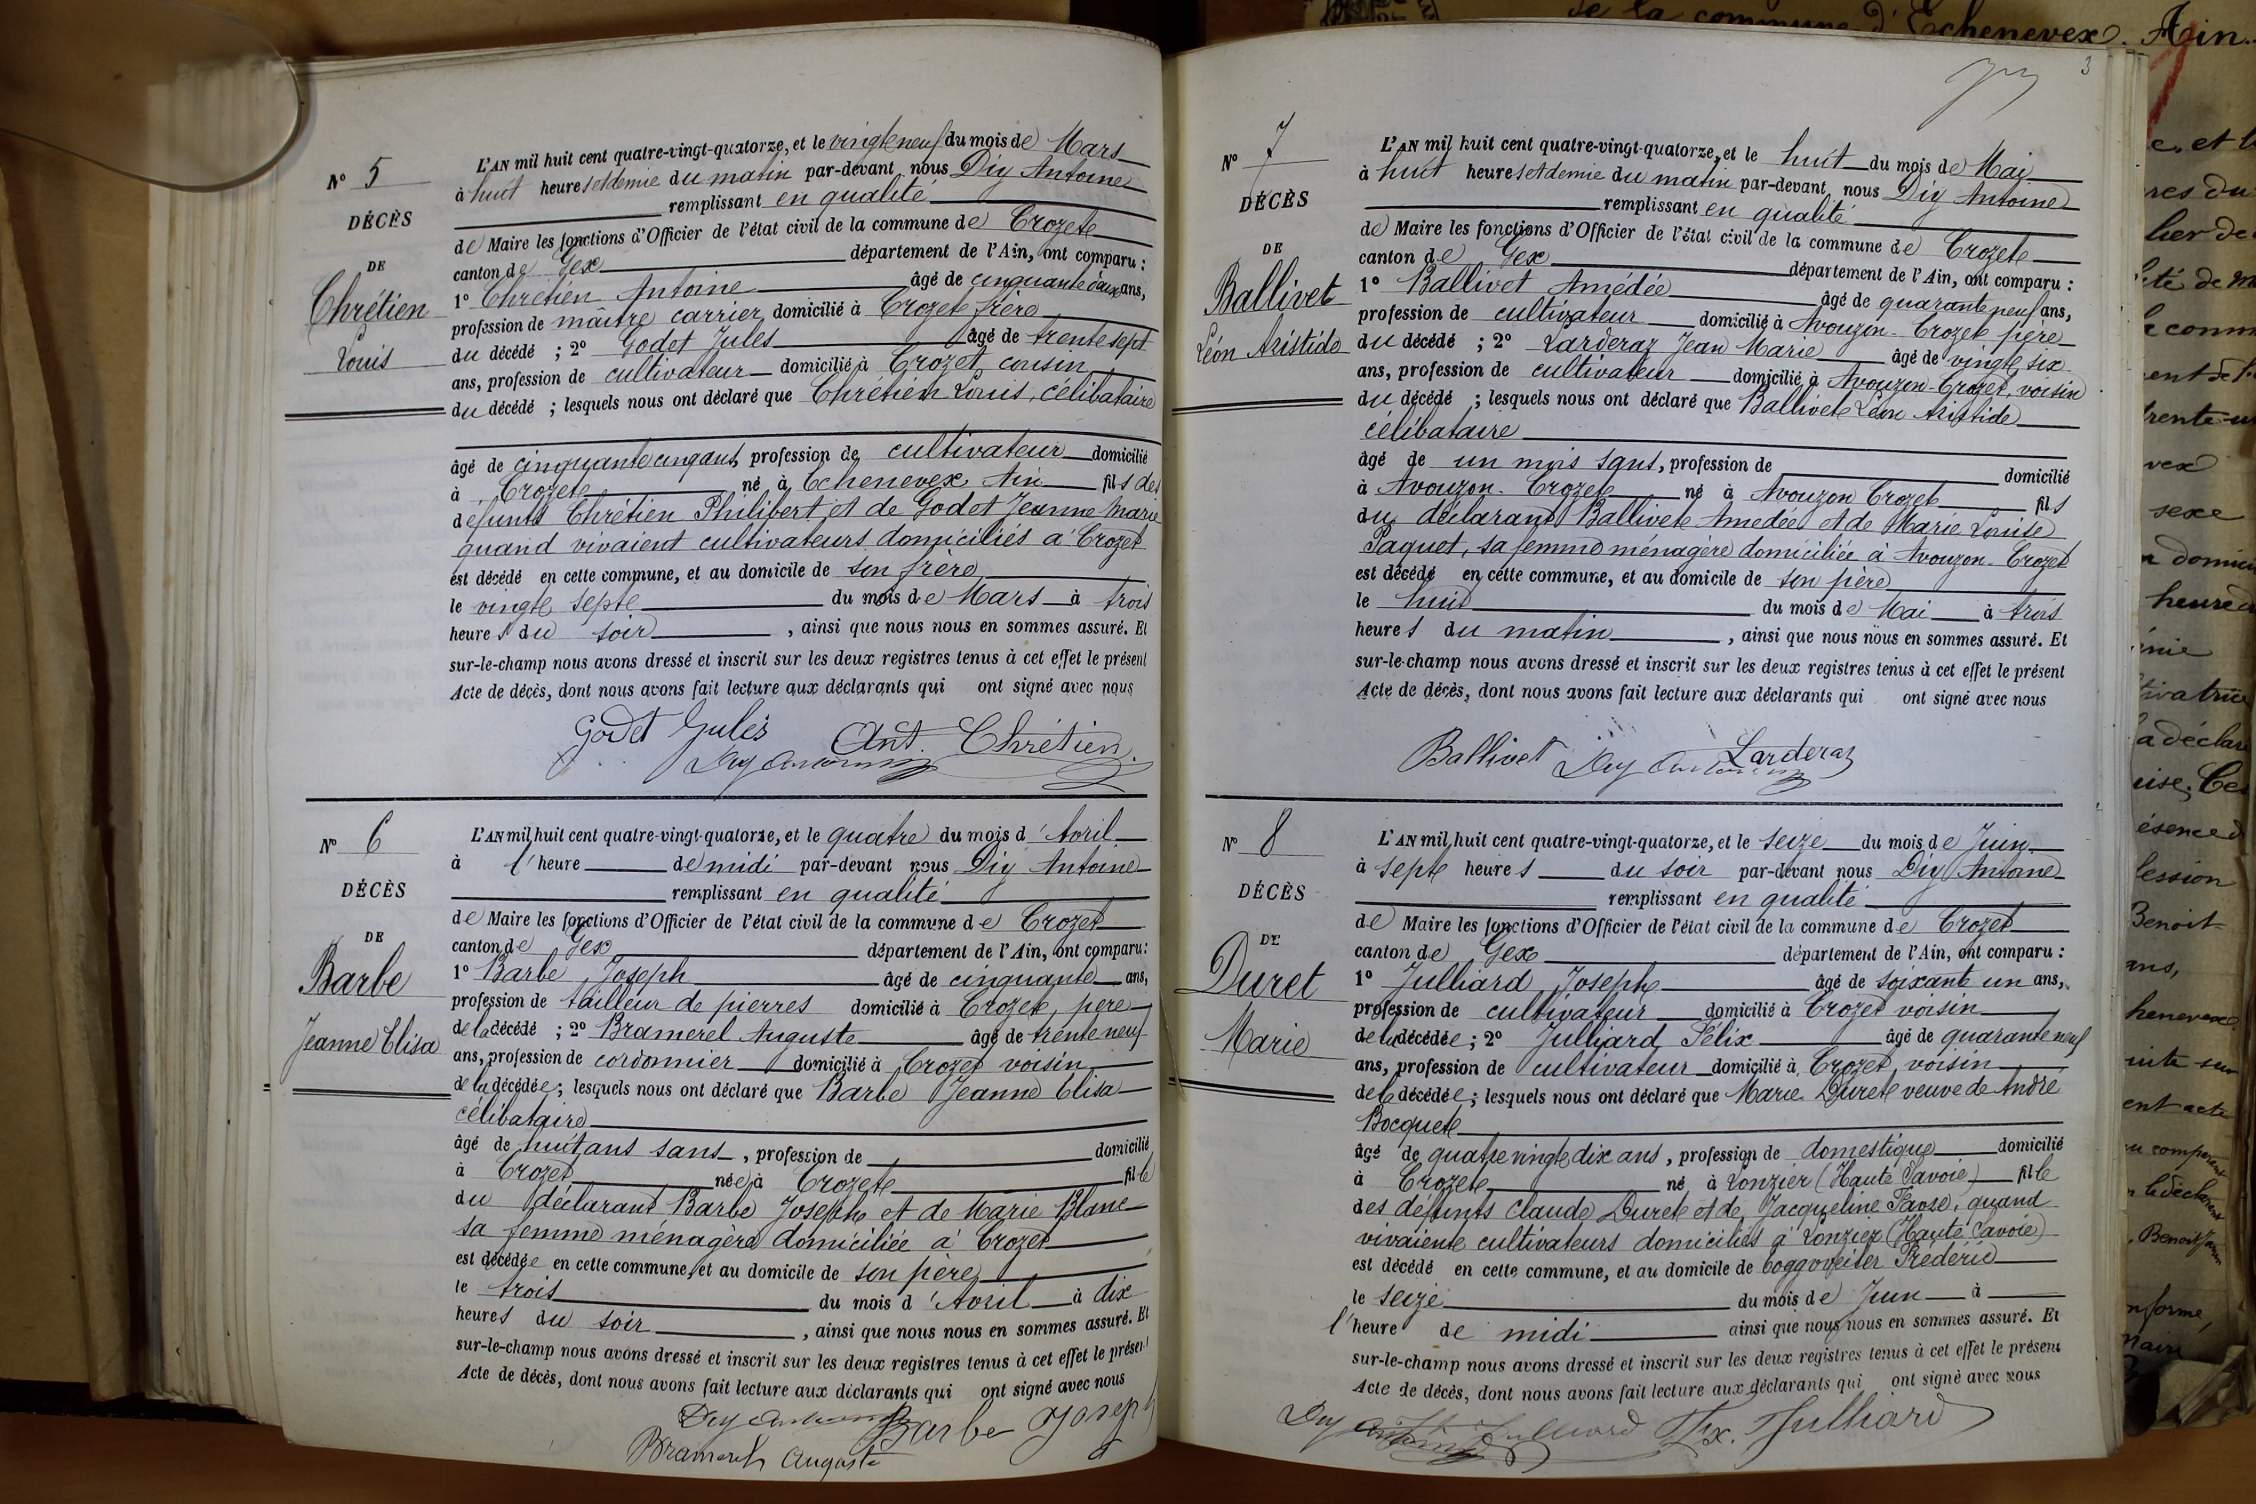 de la commune d'Echenevex. Ain.
N° 5
DÉCÈS
DE
Chrétien
Louis
L'AN mil huit cent quatre-vingt-quatorze, et le vingt neuf du mois de Mars
à huit heures et demie du matin par-devant nous Diy Antoine
remplissant en qualité
de Maire les fonctions d'Officier de l'état civil de la commune de Crozet
canton de Gex département de l'Ain, ont comparu :
1° Chrétien Antoine âgé de cinquante deux ans,
profession de maître carrier domicilié à Crozet frère
du décédé ; 2° Godet Jules âgé de trente sept
ans, profession de cultivateur domicilié à Crozet, cousin
du décédé ; lesquels nous ont déclaré que Chrétien Louis, célibataire
âgé de cinquante cinq ans, profession de cultivateur domicilié
à Crozet né à Echenevex Ain fils des
defunts Chrétien Philibert et de Godet Jeanne Marie
quand vivaient cultivateurs domiciliés à Crozet
est décédé en cette commune, et au domicile de son frère
le vingt sept du mois de Mars à trois
heures du soir , ainsi que nous nous en sommes assuré. Et
sur-le-champ nous avons dressé et inscrit sur les deux registres tenus à cet effet le présent
Acte de décès, dont nous avons fait lecture aux déclarants qui ont signé avec nous
Godet Jules Ant. Chrétien
Diy Antoine
N° 6
DÉCÈS
DE
Barbe
Jeanne Elisa
L'AN mil huit cent quatre-vingt-quatorze, et le quatre du mois d'Avril
à l'heure de midi par-devant nous Diy Antoine
remplissant en qualité
de Maire les fonctions d'Officier de l'état civil de la commune de Crozet
canton de Gex département de l'Ain, ont comparu :
1° Barbe Joseph âgé de cinquante ans,
profession de tailleur de pierres domicilié à Crozet, père
de la décédé ; 2° Bramerel Auguste âgé de trente neuf
ans, profession de cordonnier domicilié à Crozet voisin
de la décédée ; lesquels nous ont déclaré que Barbe Jeanne Elisa
célibataire
âgé de huit ans sans , profession de domicilié
à Crozet née à Crozet fille
du déclarant Barbe Joseph et de Marie Blanc
sa femme ménagère domiciliée à Crozet
est décédée en cette commune, et au domicile de son père
le trois du mois d'Avril à dix
heures du soir , ainsi que nous nous en sommes assuré. Et
sur-le-champ nous avons dressé et inscrit sur les deux registres tenus à cet effet le présent
Acte de décès, dont nous avons fait lecture aux déclarants qui ont signé avec nous
Diy Antoine Barbe Joseph
Bramerel Auguste
3
N° 7
DÉCÈS
DE
Ballivet
Léon Aristide
L'AN mil huit cent quatre-vingt-quatorze, et le huit du mois de Mai
à huit heures et demie du matin par-devant nous Diy Antoine
remplissant en qualité
de Maire les fonctions d'Officier de l'état civil de la commune de Crozet
canton de Gex département de l'Ain, ont comparu :
1° Ballivet Amédée âgé de quarante neuf ans,
profession de cultivateur domicilié à Avouzon-Crozet père
du décédé ; 2° Larderaz Jean Marie âgé de vingt six
ans, profession de cultivateur domicilié à Avouzon-Crozet, voisin
du décédé ; lesquels nous ont déclaré que Ballivet Léon Aristide
célibataire
âgé de un mois sans, profession de domicilié
à Avouzon-Crozet né à Avouzon Crozet fils
du déclarant Ballivet Amedée et de Marie Louise
Paquet, sa femme ménagère domiciliée à Avouzon-Crozet
est décédé en cette commune, et au domicile de son père
le huit du mois de Mai à trois
heures du matin , ainsi que nous nous en sommes assuré. Et
sur-le-champ nous avons dressé et inscrit sur les deux registres tenus à cet effet le présent
Acte de décès, dont nous avons fait lecture aux déclarants qui ont signé avec nous
Ballivet Diy Antoine Larderaz
N° 8
DÉCÈS
DE
Duret
Marie
L'AN mil huit cent quatre-vingt-quatorze, et le seize du mois de Juin
à sept heures du soir par-devant nous Diy Antoine
remplissant en qualité
de Maire les fonctions d'Officier de l'état civil de la commune de Crozet
canton de Gex département de l'Ain, ont comparu :
1° Julliard Joseph âgé de soixante un ans,
profession de cultivateur domicilié à Crozet voisin
de la décédée ; 2° Julliard Félix âgé de quarante neuf
ans, profession de cultivateur domicilié à Crozet, voisin
de la décédée ; lesquels nous ont déclaré que Marie Duret veuve de André
Bocquet
âgé de quatre vingt dix ans, profession de domestique domicilié
à Crozet né à Lonzier (Haute Savoie) fille
des défunts Claude Duret et de Jacqueline quand
vivaient cultivateurs domiciliés à Lonzier (Haute Savoie)
est décédé en cette commune, et au domicile de Frédéric
le seize du mois de Juin à
l'heure de midi ainsi que nous nous en sommes assuré. Et
sur-le-champ nous avons dressé et inscrit sur les deux registres tenus à cet effet le présent
Acte de décès, dont nous avons fait lecture aux déclarants qui ont signé avec nous
Diy Antoine Julliard Flx. Julliard